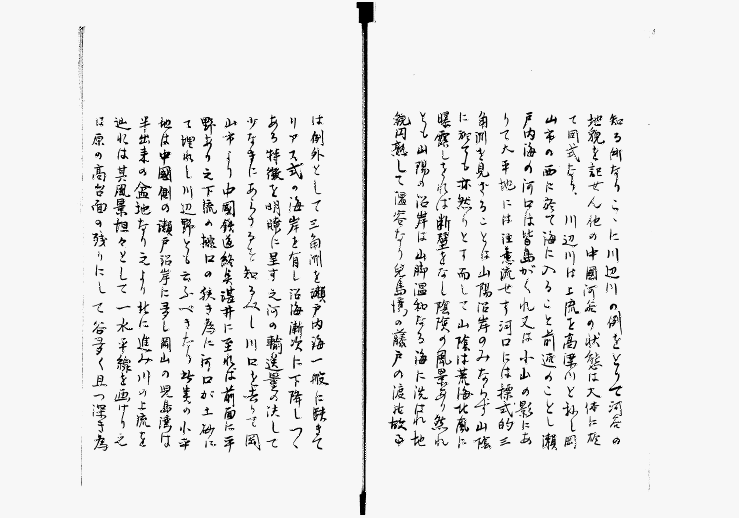 知る所なりここに川辺川の例をとりて河谷の
地貌を記せん他の中國河谷の状態は大体に於
て同式なり、川辺川は上流を高梁川と称し岡
山市の西に於て海に入ること前述のごとし瀬
戸内海の河口は皆島がくれ又は小山の影にあ
りて大平地には注意流せず河口には標式的三
角洲を見ざることは山陽沿岸のみならず山陰
に於ても亦然りとす而して山陰は荒海北風に
曝露しされば断壁をなし陰険の風景あり然れ
とも山陽の沿岸は山脚温和なる海に洗はれ地
貌円熟して温容なり児島湾の藤戸の渡は故
は例外として三角洲を瀬戸内海一般に狭きて
リアス式の海岸を有し沿海漸次に下降しつゝ
ある特徴を明瞭に呈す之河の輸送量の決して
少なきにあらざることを知るべし川口を去りて岡
山市より中國鉄道終点湛井に至れば前面に平
野あり之下流の概口の狭き為に河口が土砂に
て埋れし川辺野とも云ふべきなり此等の小平
地は中國側の瀬戸沿岸に多し岡山の児島湾は
半出来の盆地なり之より北に進み川の上流を
辿れは其風景坦々として一水平線を画けり之
は原の高台面の残りにして谷多く且つ深き為